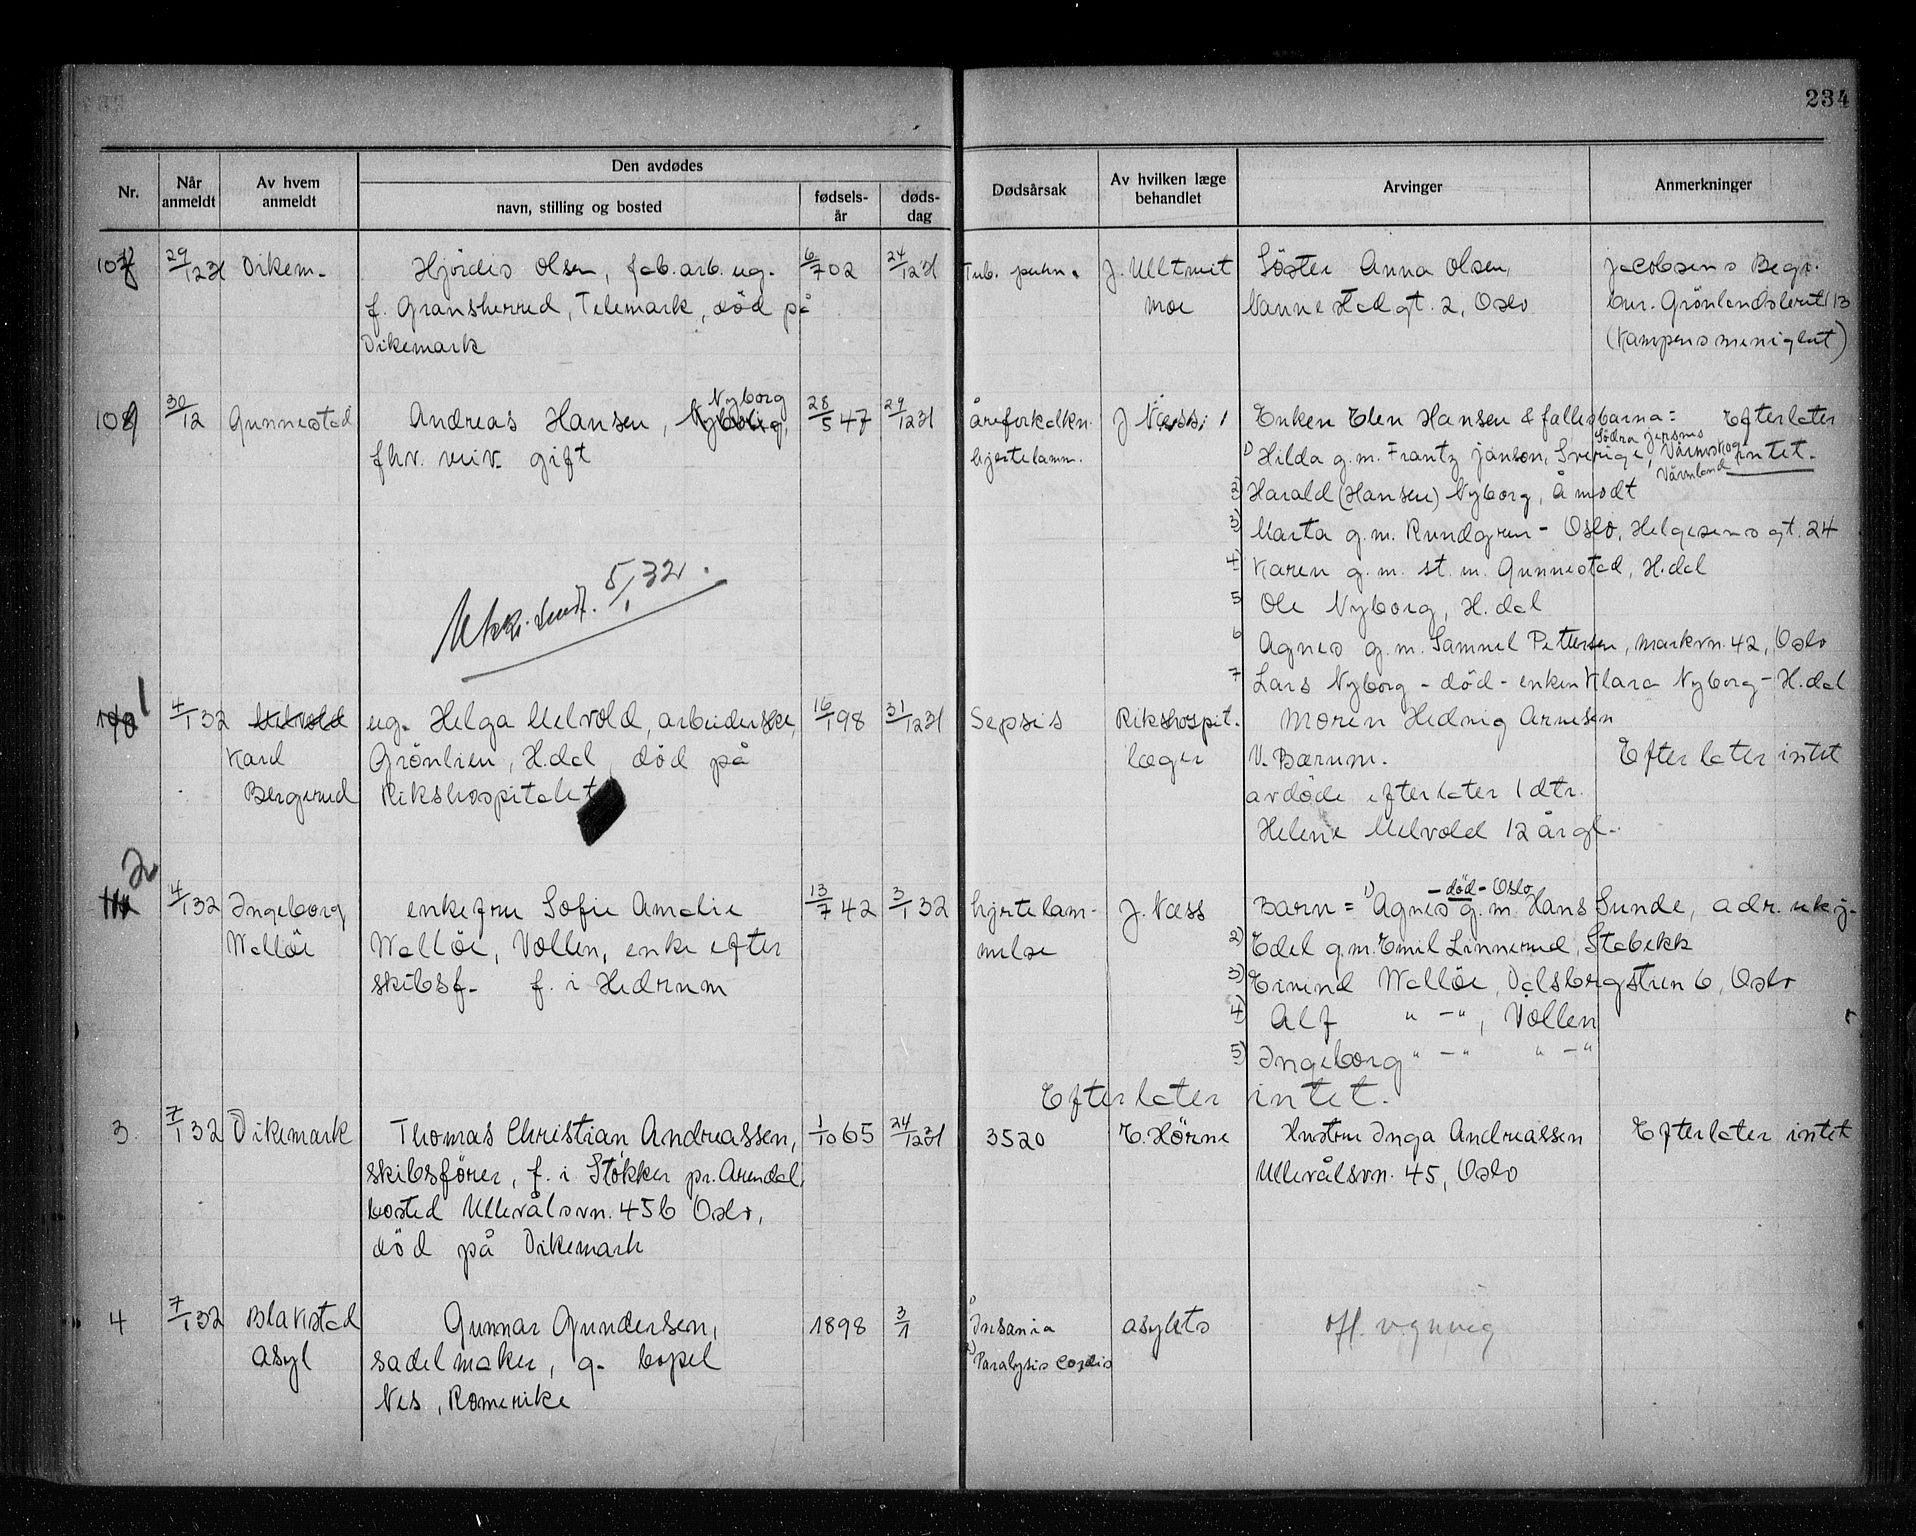 234
Nr.
Når anmeldt
Av hvem anmeldt
Den avdødes
navn, stilling og bosted
fødsels-år
døds-dag
Dødsårsak
Av hvilken læge behandlet
Arvinger
Anmerkninger
29/12 31 Dikem- Hjördis Olsen, fab.arb. ug. 6/7 02 24/12 31 Tub. pulm. J. Ulltveit Söster Anna Olsen, Jacobsens Begr.
f. Gransherred, Telemark, död på moe Nannestadgt. 2, Oslo bur. Grönlandsleret 13
Dikemark (Kampens menighet)
Nyborg
109 30/12 Gunnestad Andreas Hansen, 28/5 47 29/12 31 åreforkalkn. J Næss Enken Elen Hansen & fellesbarna: Efterlater
fhv. geift hjertelamm. 1) Hilda g.m. Frantz Janson, Sverige, Värmskog intet.
Södra
Värmland
2) Harald (Hansen) Nyborg, Åmodt
3) Marta g.m. Rundgren - Oslo, Helgesens gt. 24
4) Karen g.m. st.m. Gunnestad, H.dal
5/1 32.
5 Ole Nyborg, H.dal
6 Agnes g.m. Samuel Pettersen, markvn. 42, Oslo
7 Lars Nyborg - död - enken Klara Nyborg - H.dal
1 4/1 32 Melvold ug. Helga Melvold, arbeiderske, 16/1 98 31/12 31 Sepsis Rikshospit. Moren Hedvig Arnesen
Karl Grönlien, H.dal, död på læger V. Bærum. Efterlater intet
Bergerud Rikshospitalet avdöde efterlater 1 dtr.
Helene Melvold 12 år gl.
2
- död - Oslo
4/1 32 Ingeborg enkefru Sofie Amalie 13/7 42 3/1 32 hjertelam- J. Næss Barn = 1) Agnes g.m. Hans Sunde, adr. ukj.
Wallöe Wallöe, Vollen, enke efter melse 2) Edel g.m. Emil Linnerud, Stabekk
skibsf. f. i Hedrum 3) Eivind Wallöe, Dalsbergstien 6, Oslo
4) Alf " - ", Vollen
5) Ingeborg " - " " - "
Efterlater intet.
3. 7/1 32 Dikemark Thomas Christian Andreassen, 1/10 65 24/12 31 3520 E. Hörne Hustru Inga Andreassen Efterlater intet
skibsförer, f. i Stokken pr. Arendal, Ullevålsvn. 45, Oslo
bosted Ullevålsvn. 45b Oslo,
död på Dikemark
4 7/1 32 Blakstad Gunnar Gundersen, 1898 3/1 1) Insania asylets
asyl sadelmaker, g. bopel 2) Paralysis cordis
Nes, Romerike